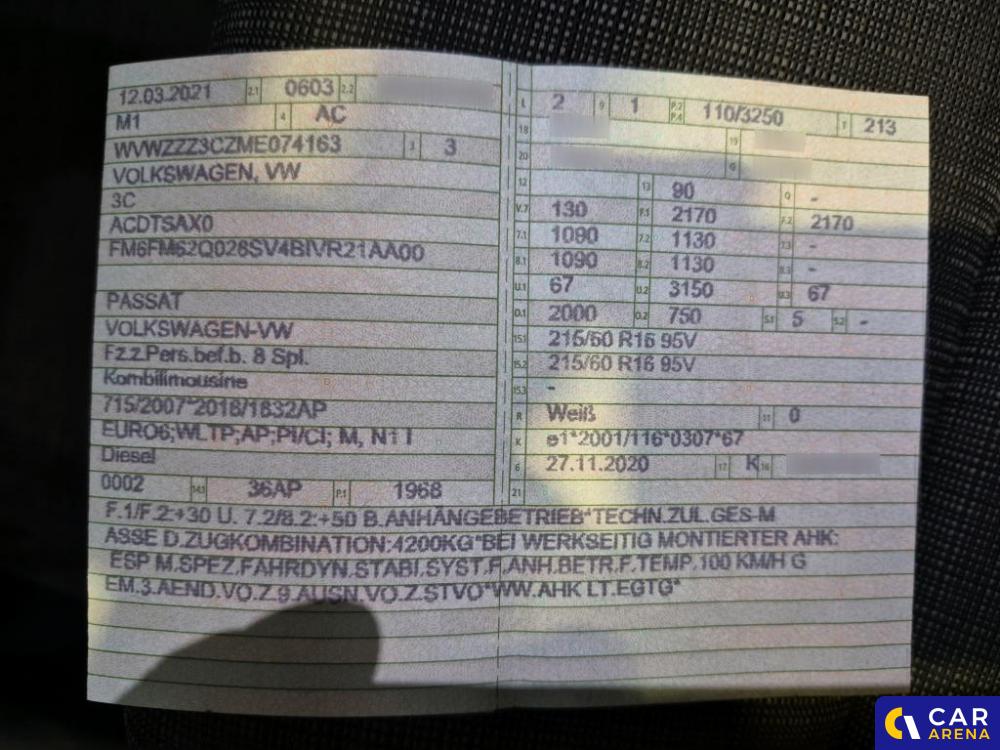 12.03.2021 2.1 0603 2.2
M1 4 AC
WVWZZZ3CZME074163 3 3
VOLKSWAGEN, VW
3C
ACDTSAX0
FM6FM62Q026SV4BIVR21AA00
PASSAT
VOLKSWAGEN-VW
Fz.z.Pers.bef.b. 8 Spl.
Kombilimousine
715/2007*2018/1832AP
EURO6;WLTP;AP;PI/CI; M, N1 I
Diesel
0002 14.1 36AP P.1 1968
L 2 9 1 P.2 P.4 110/3250 T 213
18 19
20 G
12 13 90 Q -
V.7 130 F.1 2170 F.2 2170
7.1 1090 7.2 1130 7.3 -
8.1 1090 8.2 1130 8.3 -
U.1 67 U.2 3150 U.3 67
O.1 2000 O.2 750 S.1 5 S.2 -
15.1 215/60 R16 95V
15.2 215/60 R16 95V
15.3 -
R Weiß 11 0
K e1*2001/116*0307*67
6 27.11.2020 17 K 16
21
F.1/F.2:+30 U. 7.2/8.2:+50 B.ANHÄNGEBETRIEB*TECHN.ZUL.GES-M
ASSE D.ZUGKOMBINATION:4200KG*BEI WERKSEITIG MONTIERTER AHK:
ESP M.SPEZ.FAHRDYN.STABI.SYST.F.ANH.BETR.F.TEMP.100 KM/H G
EM.3.AEND.VO.Z.9.AUSN.VO.Z.STVO*WW.AHK LT.EGTG*
CAR
ARENA